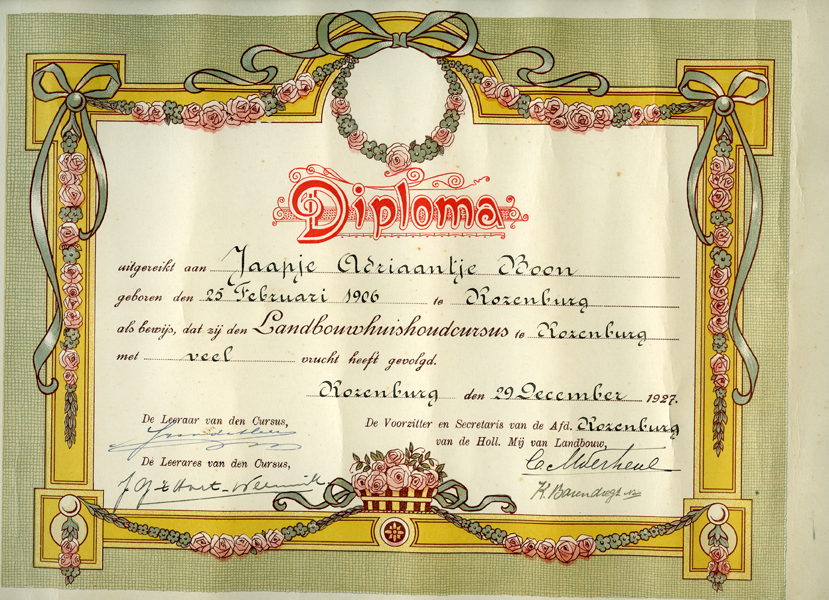 Diploma
uitgereikt aan Jaapje Adriaantje Boon
geboren den 25 Februari 1906 te Rozenburg
als bewijs, dat zij den Landbouwhuishoudcursus te Rozenburg
met veel vrucht heeft gevolgd.
Rozenburg den 29 December 1927.
De Leeraar van den Cursus,
De Leerares van den Cursus,
De Voorzitter en Secretaris van de Afd. Rozenburg
van de Holl. Mij van Landbouw,
K. Barendregt